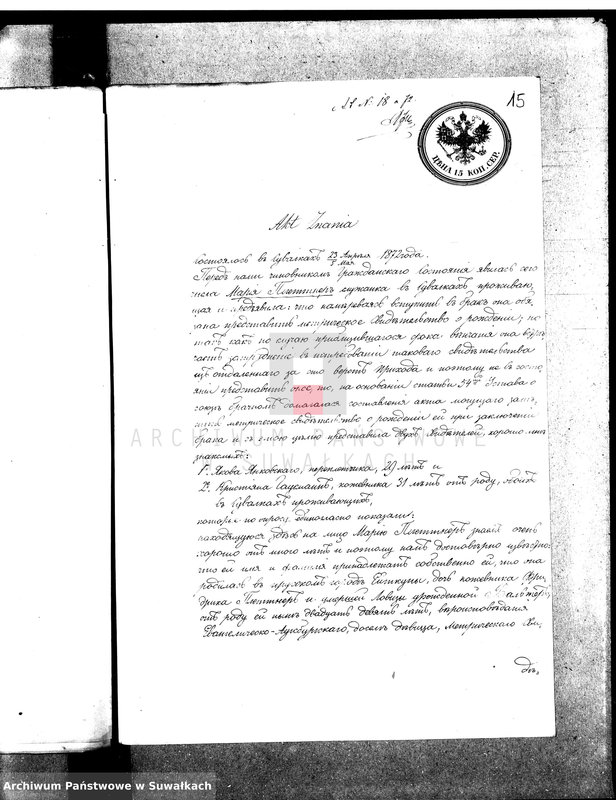 къ № 18 и 72.
15
ЦѢНА 15 КОП. СЕР.
Akt Znania
Состоялось въ Сувалкахъ 23 Апрѣля / 5 Мая 1872 года.
Передъ нами чиновникомъ Гражданскаго Состоянія явилась сего
числа Марія Плеттнеръ служанка въ Сувалкахъ проживаю-
щая и предъявила: что намѣреваясь вступить въ бракъ она обя-
зана представить метрическое Свидѣтельство о рожденіи; но
такъ какъ по случаю приближившагося срока вѣнчанія она встрѣ-
чаетъ затрудненіе въ истребованіи таковаго свидѣтельства
изъ отдаленнаго за верстъ прихода и поэтому не въ состо-
яніи представить оное, то, на основаніи статьи 54й Устава о
союзѣ брачномъ домагалась составленія акта могущаго замѣ-
нить метрическое свидѣтельство о рожденіи ей при заключеніи
брака и съ этою цѣлью представила двухъ свидѣтелей, хорошо
знакомыхъ:
1. Якова Янковскаго, переплетчика, 29 лѣтъ и
2. Кристіяна Гаусманъ, кожевника 31 лѣтъ отъ роду, обоихъ
въ Сувалкахъ проживающихъ,
которые по спросу единогласно показали:
находящуюся здѣсь на лицо Марію Плеттнеръ знаемъ очень
хорошо отъ много лѣтъ и поэтому намъ достовѣрно извѣстно:
что ей имя и фамилія принадлежатъ собственно ей, что она
родилась въ прусскомъ городѣ Ейткуны, дочь кожевника Фри-
дрика Плеттнеръ и умершей Ловизы урожденной Вальтеръ,
отъ роду ей нынѣ двадцать девять лѣтъ, вѣроисповѣданія
Евангелическо-Аугсбургскаго, доселѣ дѣвица, метрическаго Сви-
дѣ-
ARCHIWUM PAŃSTWOWE
W SUWAŁKACH
Archiwum Państwowe w Suwałkach